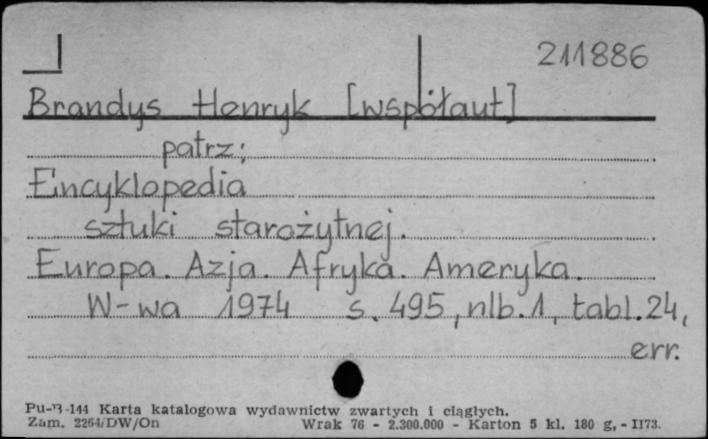 211886
Brandys Henryk [współaut]
patrz:
Encyklopedia
sztuki starożytnej.
Europa. Azja. Afryka. Ameryka.
W-wa 1974 s. 495, nlb. 1, tabl. 24,
err.
Pu-B-144 Karta katalogowa wydawnictw zwartych i ciągłych.
Zam. 2264/DW/On Wrak 76 - 2.300.000 - Karton 5 kl. 180 g, - II73.